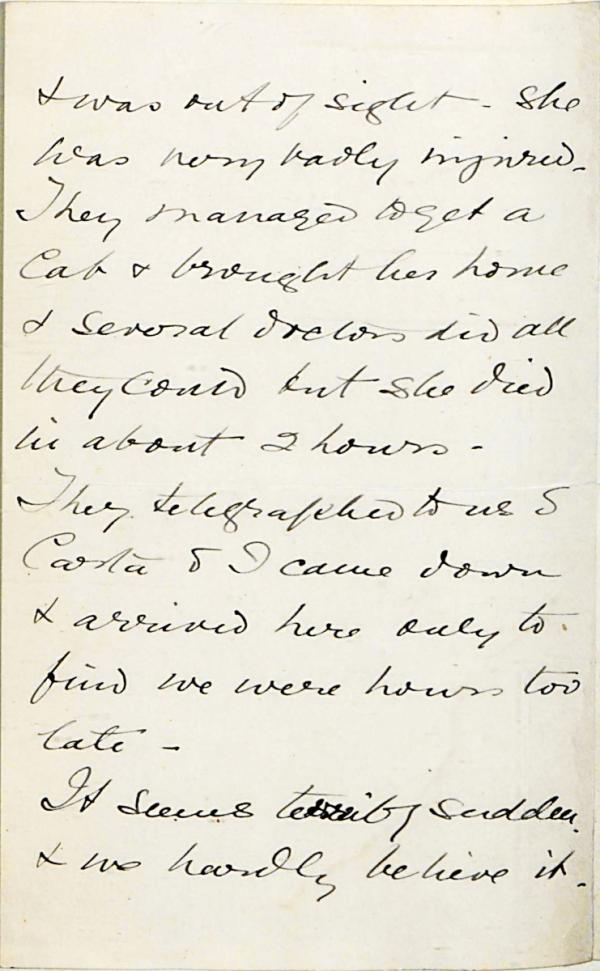 & was out of sight - She
was very badly injured -
They managed to get a
Cab & brought her home
& several doctors did all
they could but she died
in about 2 hours -
They telegraphed to us &
Casta & I came down
& arrived here only to
find we were hours too
late -
It seems terribly sudden.
& we hardly believe it.